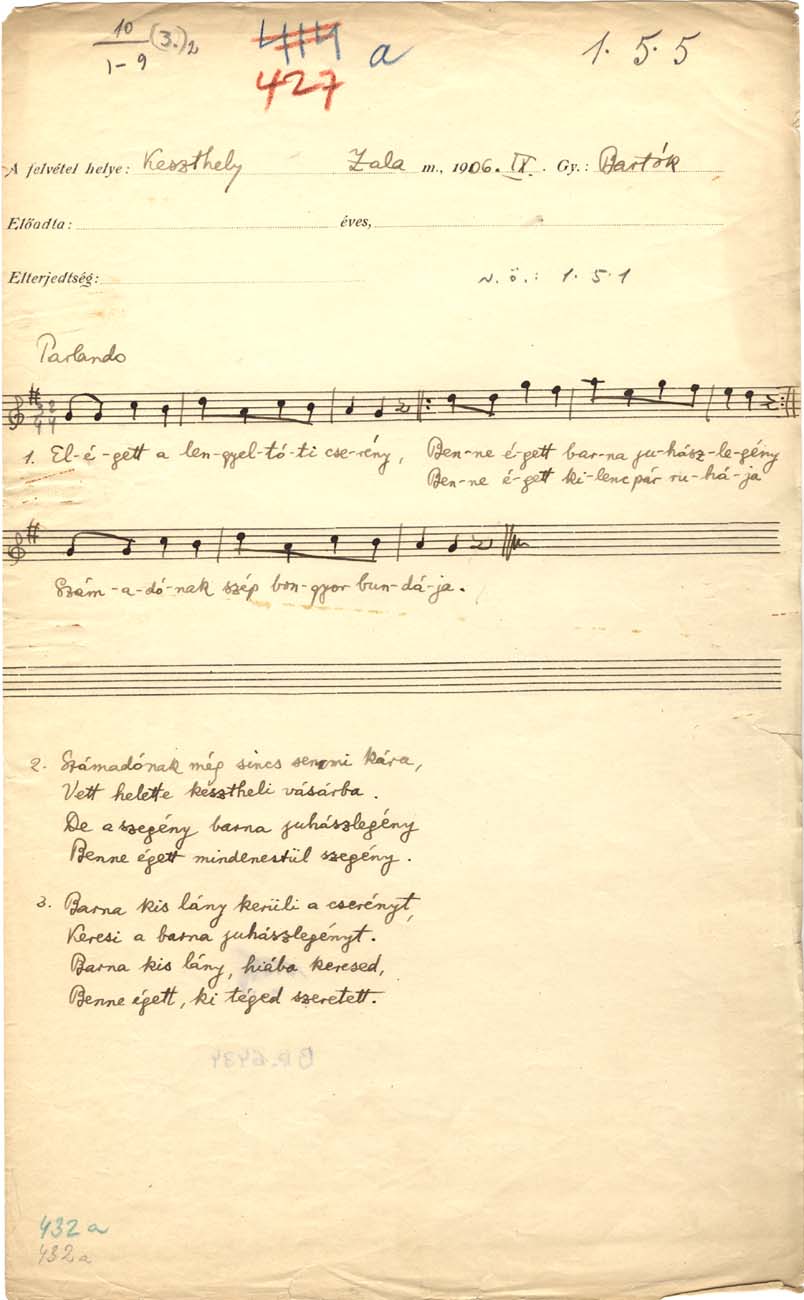 10 (3.)2
1-9
414 a
427
1. 5. 5
A felvétel helye: Keszthely Zala m., 1906. IX. Gy.: Bartók
Előadta: éves,
Elterjedtség: v. ö.: 1. 5. 1
Parlando
1. El-é-gett a len-gyel-tó-ti cse-rény, Ben-ne é-gett bar-na ju-hász-le-gény
Ben-ne é-gett ki-lenc pár ru-há-ja
Szám-a-dó-nak szép bon-gyor bun-dá-ja.
2. Számadónak még sincs semmi kára,
Vett helette késztheli vásárba.
De a szegény barna juhászlegény
Benne égett mindenestül szegény.
3. Barna kis lány kerüli a cserényt,
Keresi a barna juhászlegényt.
Barna kis lány, hiába keresed,
Benne égett, ki téged szeretett.
432 a
432 a